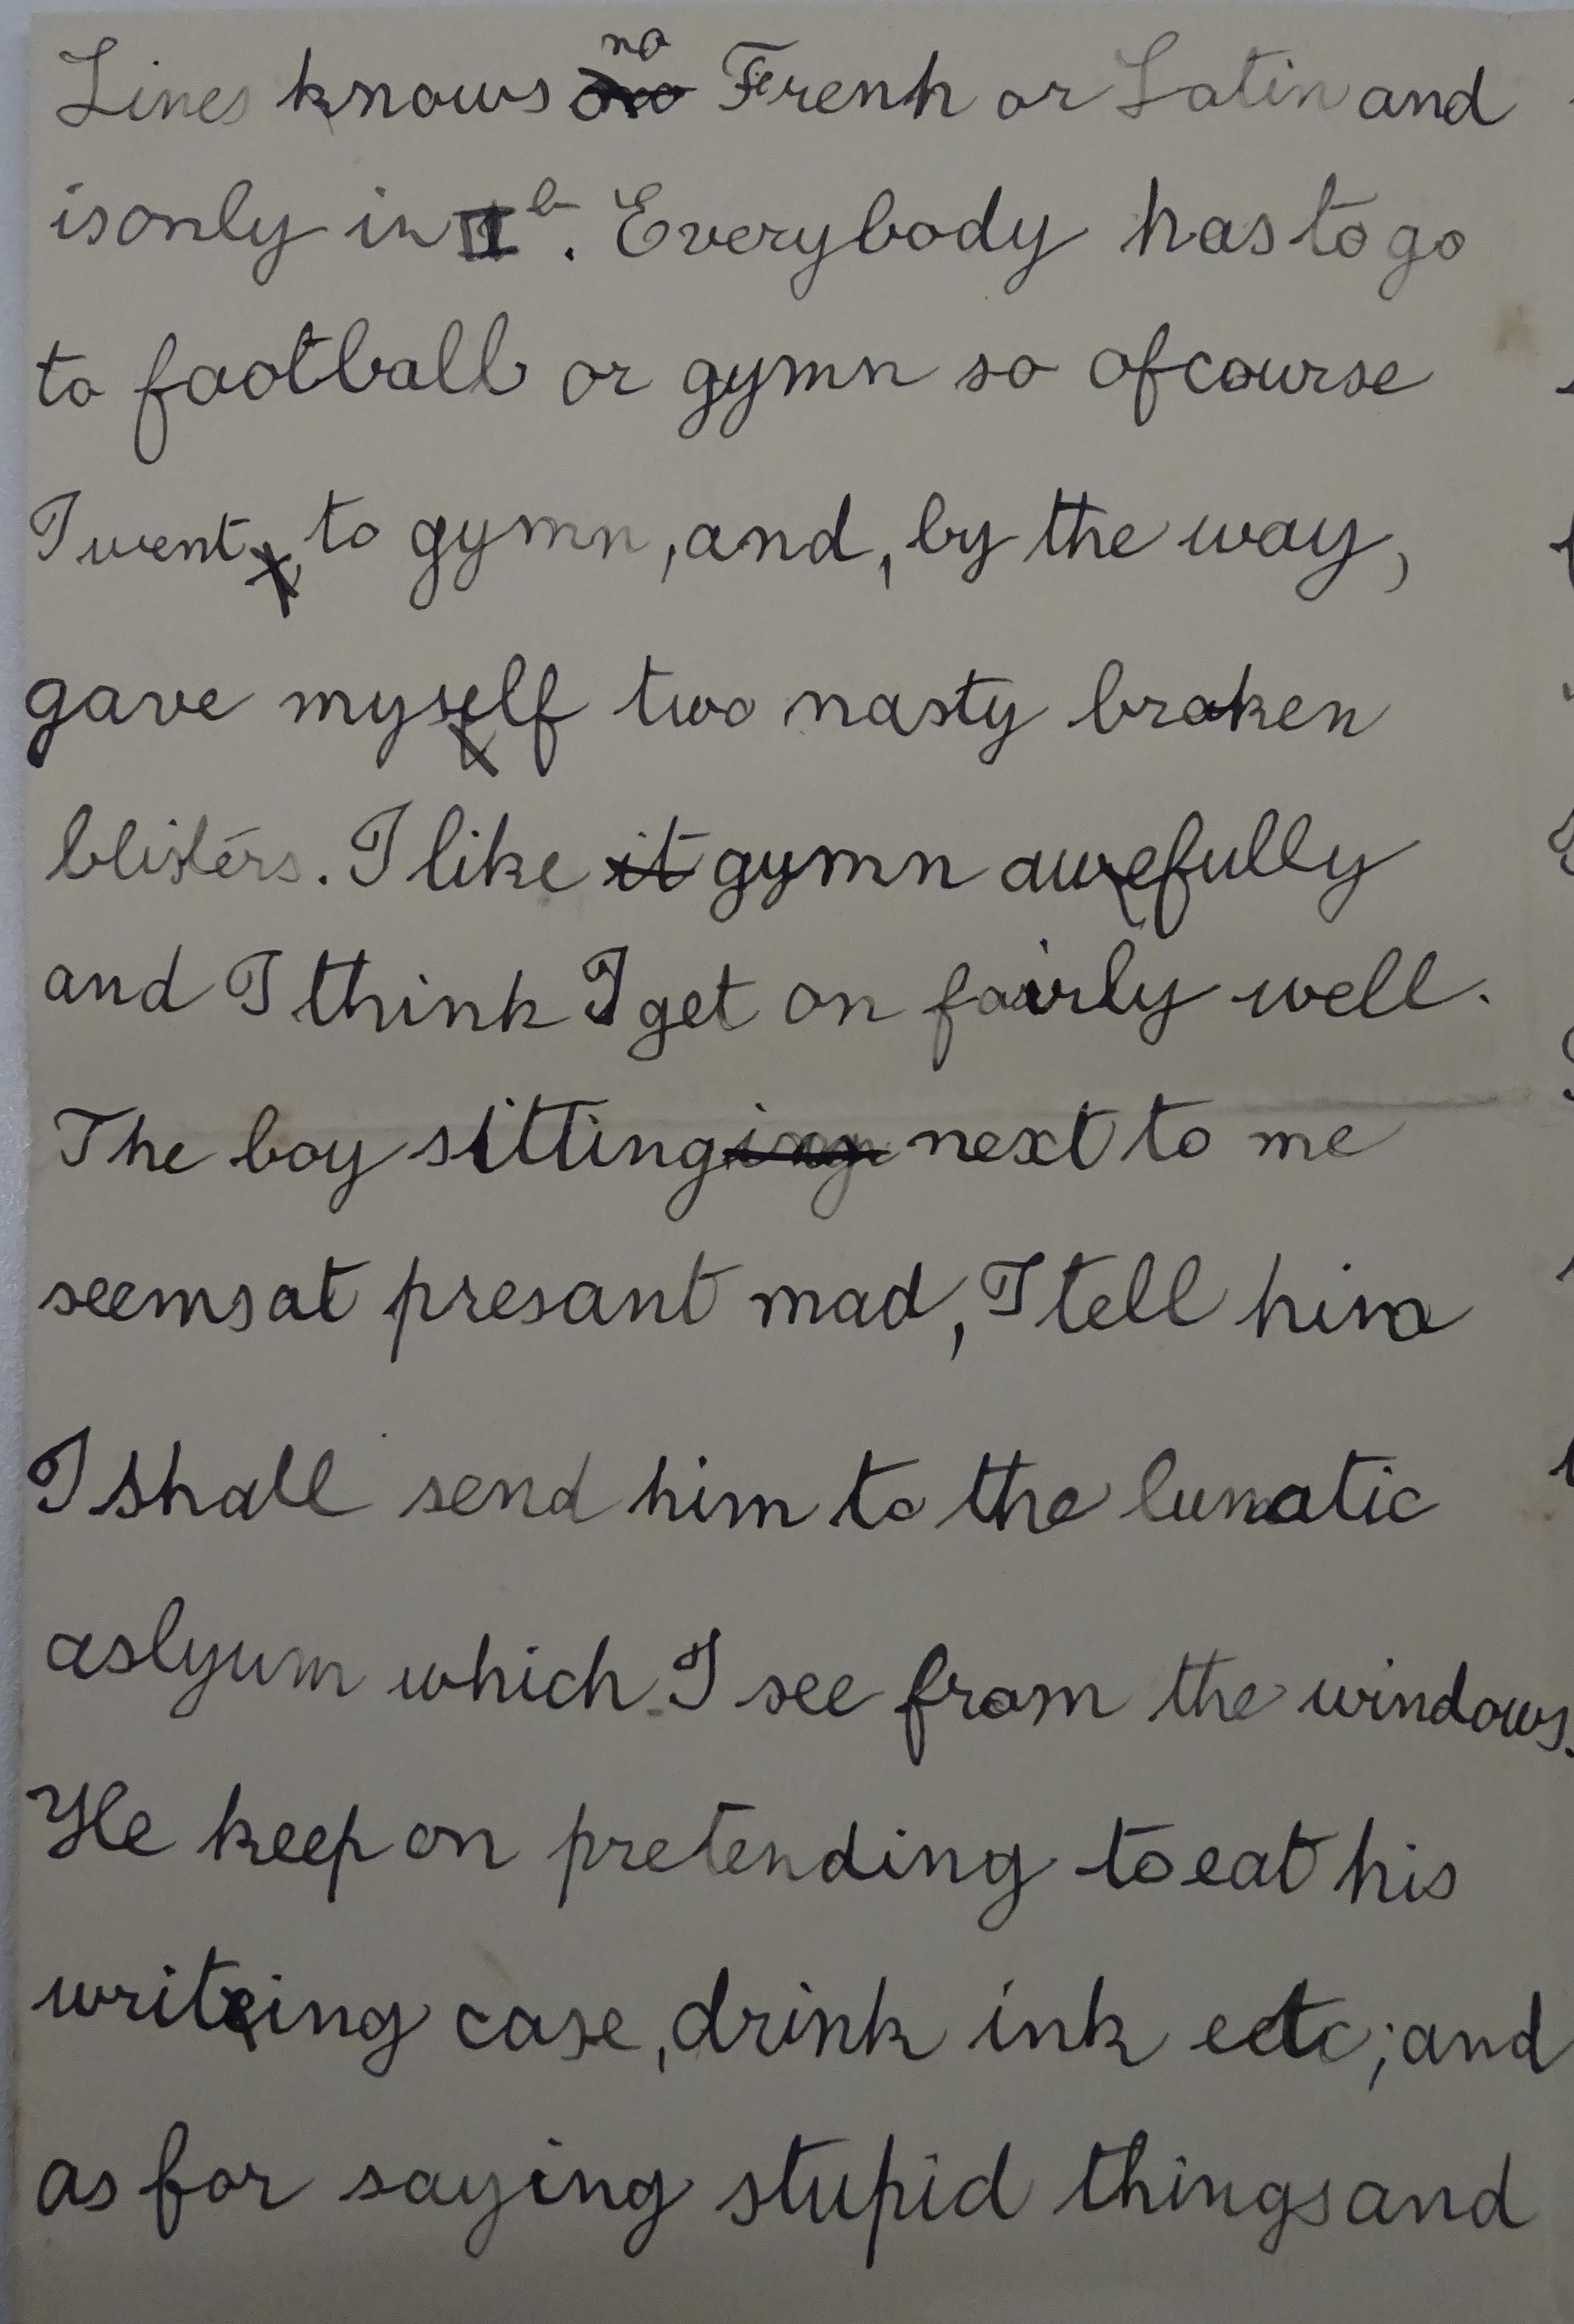 Lines knows no Frenh or Latin and
is only in II b. Everybody has to go
to football or gymn so ofcourse
I went to gymn, and, by the way,
gave myself two nasty broken
blisters. I like it gymn awefully
and I think I get on fairly well.
The boy sitting next to me
seems at presant mad, I tell him
I shall send him to the lunatic
aslyum which I see from the windows.
He keep on pretending to eat his
writeing case, drink ink ectc; and
as for saying stupid things and